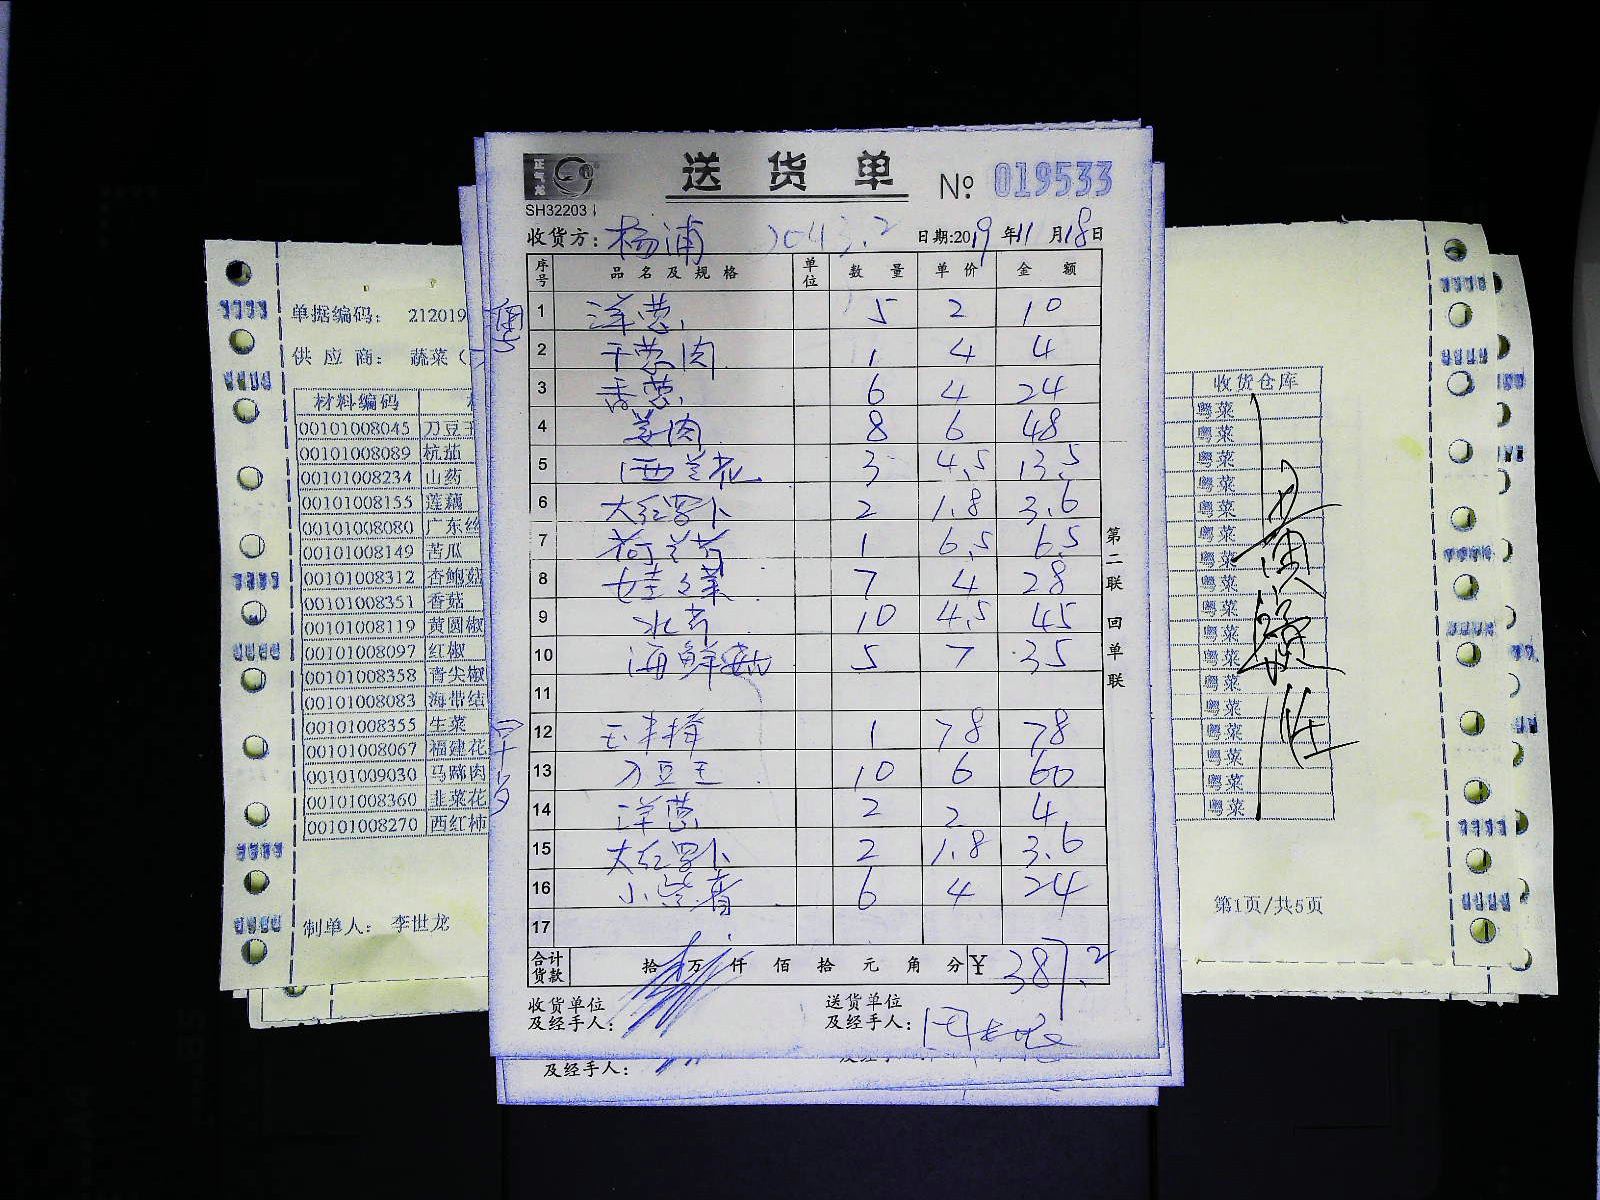 正气龙
送货单
№ 019533
SH32203
收货方：杨浦 2043.2 日期:2019年11月18日
序号 品名及规格 单位 数量 单价 金额
粤
1 洋葱 5 2 10
2 干葱肉 1 4 4
3 香葱 6 4 24
4 姜肉 8 6 48
5 西兰花 3 4.5 13.5
6 大红萝卜 2 1.8 3.6
7 荷兰芹 1 6.5 6.5
8 娃娃菜 7 4 28
9 水芹 10 4.5 45
10 海鲜菇 5 7 35
11
12 78 78
13 刀豆王 10 6 60
14 洋葱 2 2 4
15 大红萝卜 2 1.8 3.6
16 6 4 24
17
合计货款 拾 万 仟 佰 拾 元 角 分 ¥ 387.2
收货单位及经手人：
送货单位及经手人：
第二联 回单联
及经手人：
单据编码： 212019
供应商： 蔬菜（
材料编码
00101008045 刀豆王
00101008089 杭茄
00101008234 山药
00101008155 莲藕
00101008080 广东丝
00101008149 苦瓜
00101008312 杏鲍菇
00101008351 香菇
00101008119 黄圆椒
00101008097 红椒
00101008358 青尖椒
00101008083 海带结
00101008355 生菜
00101008067 福建花
00101009030 马蹄肉
00101008360 韭菜花
00101008270 西红柿
制单人： 李世龙
收货仓库
粤菜
粤菜
粤菜
粤菜
粤菜
粤菜
粤菜
粤菜
粤菜
粤菜
粤菜
粤菜
粤菜
粤菜
粤菜
粤菜
粤菜
第1页/共5页